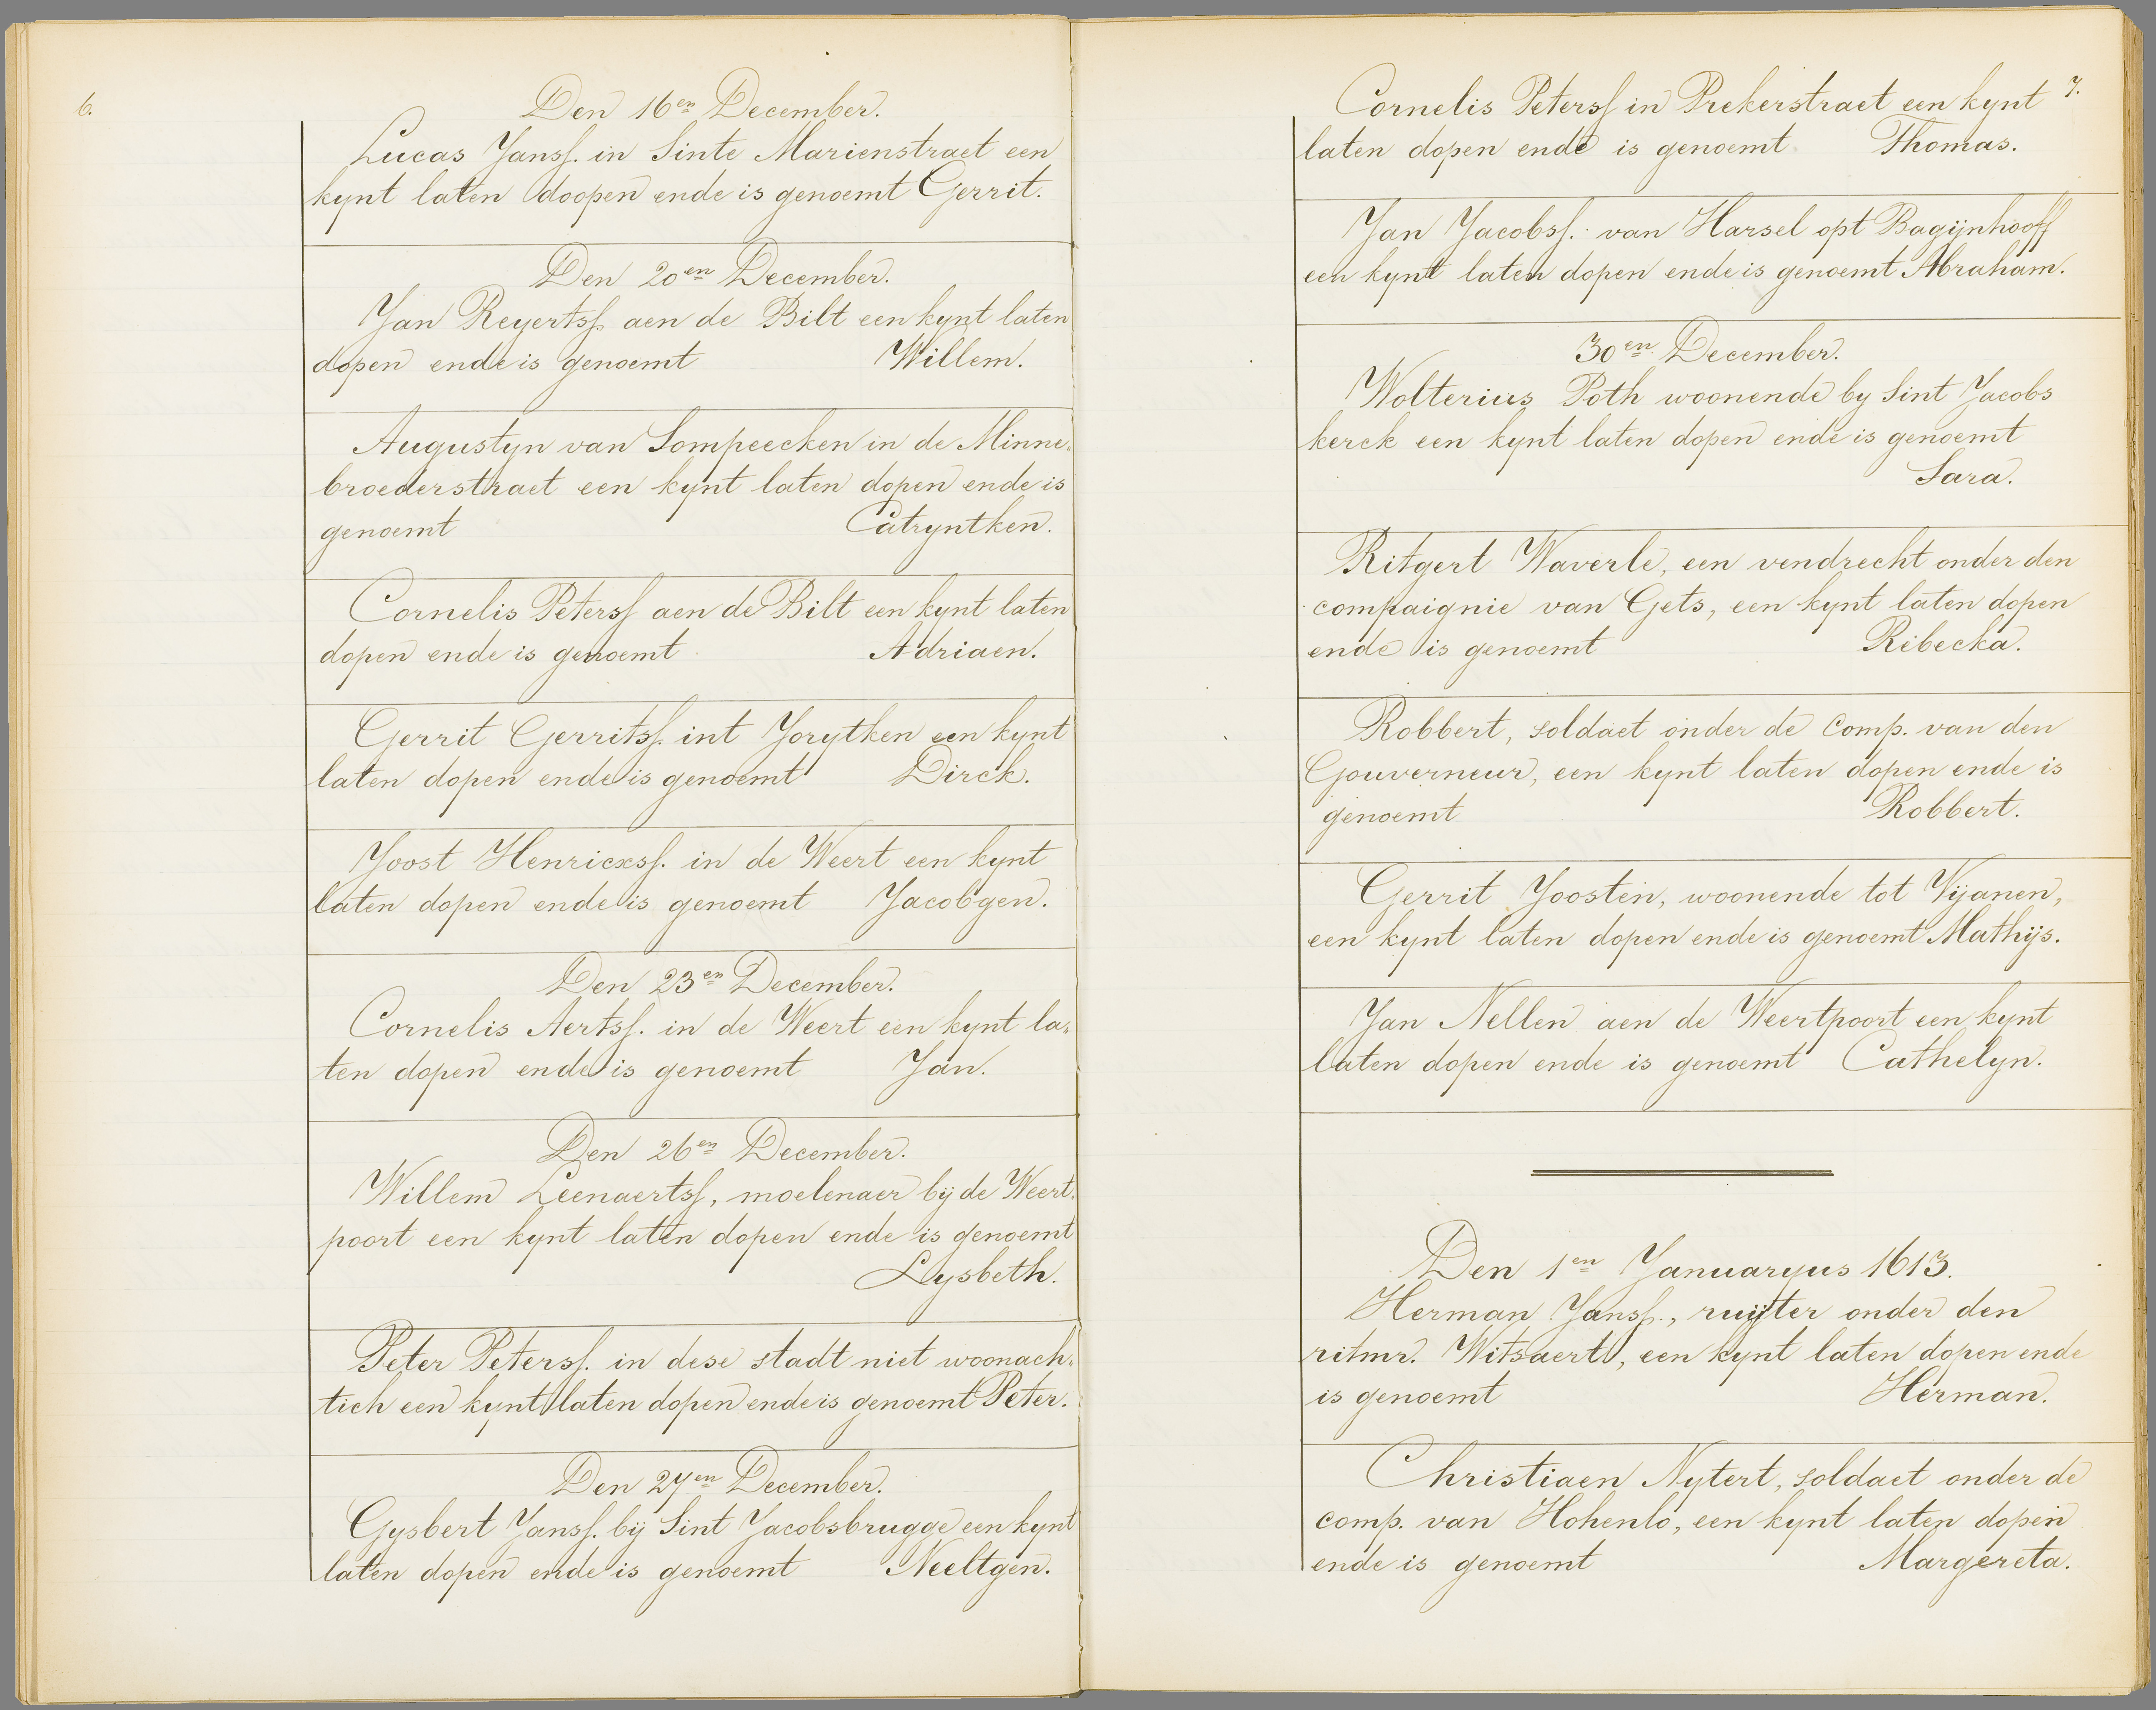 6.
Den 16en December.
Lucas Janss. in Sinte Marienstraet een
kynt laten doopen ende is genoemt Gerrit.
Den 20en December.
Jan Reyertss. aen de Bilt een kynt laten
dopen ende is genoemt Willem.
Augustyn van Sompeecken in de Minne-
broederstraet een kynt laten dopen ende is
genoemt Catryntken.
Cornelis Peterss aen de Bilt een kynt laten
dopen ende is genoemt Adriaen.
Gerrit Gerritss. int Jorytken een kynt
laten dopen ende is genoemt Dirck.
Joost Henricxss. in de Weert een kynt
laten dopen ende is genoemt Jacobgen.
Den 23en December.
Cornelis Aertss. in de Weert een kynt la-
ten dopen ende is genoemt Jan.
Den 26en December.
Willem Leenaertss, moelenaer bij de Weert-
poort een kynt laten dopen ende is genoemt
Lysbeth.
Peter Peterss. in dese stadt niet woonach-
tich een kynt laten dopen ende is genoemt Peter.
Den 27en December.
Gysbert Janss. bij Sint Jacobsbrugge een kynt
laten dopen ende is genoemt Neeltgen.
7.
Cornelis Peterss in Prekerstraet een kynt
laten dopen ende is genoemt Thomas.
Jan Jacobss. van Harsel opt Bagijnhooff
een kynt laten dopen ende is genoemt Abraham.
30en December.
Wolterius Poth woonende by Sint Jacobs
kerck een kynt laten dopen ende is genoemt
Sara.
Ritgert Waverle, een vendrecht onder den
compaignie van Gets, een kynt laten dopen
ende is genoemt Ribecka.
Robbert, soldaet onder de comp. van den
Gouverneur, een kynt laten dopen ende is
genoemt Robbert.
Gerrit Joosten, woonende tot Vijanen,
een kynt laten dopen ende is genoemt Mathijs.
Jan Nellen aen de Weertpoort een kynt
laten dopen ende is genoemt Cathelyn.
Den 1en Januaryus 1613.
Herman Janss., ruijter onder den
ritmr. Witsaert, een kynt laten dopen ende
is genoemt Herman.
Christiaen Nytert, soldaet onder de
comp. van Hohenlo, een kynt laten dopen
ende is genoemt Margereta.